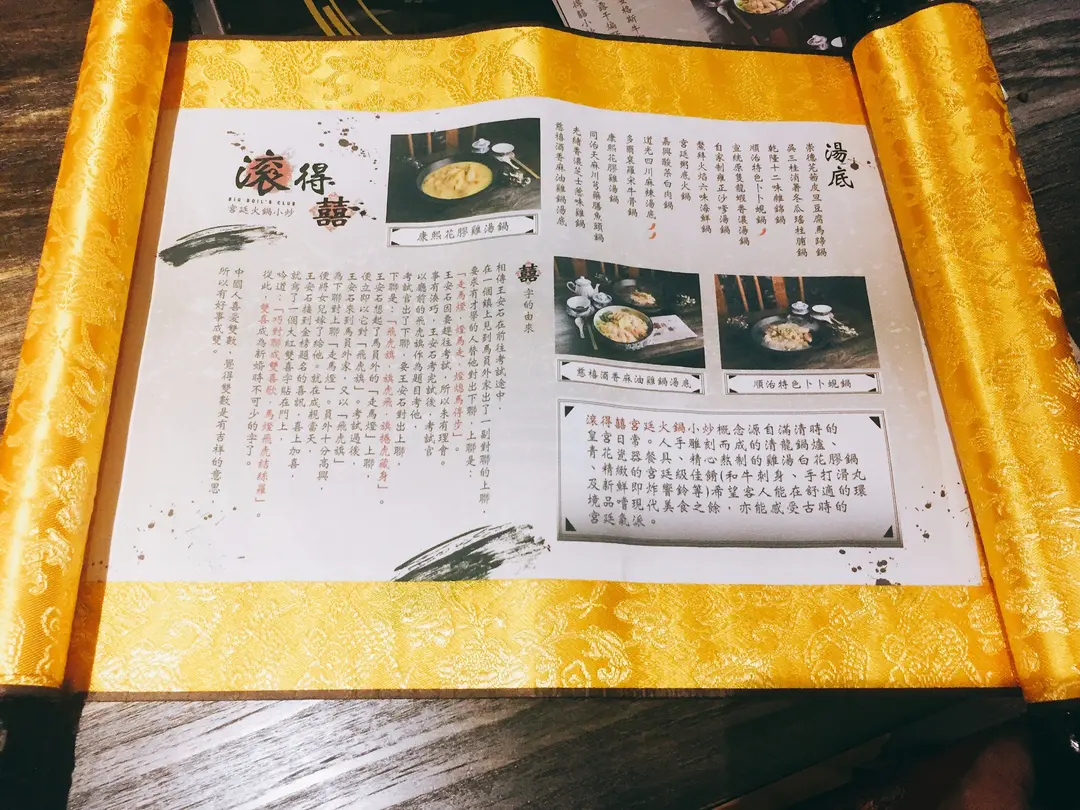 滾得囍
BIG BOIL'S CLUB
宮廷火鍋小炒
湯底
崇德芫荽皮旦豆腐馬蹄鍋
吳三桂消暑冬瓜瑤柱脯鍋
乾隆十二味雜錦鍋
順治特色卜卜蜆鍋
宣統原隻龍蝦香濃湯鍋
自家制雍正沙嗲湯鍋
鰲拜火焰六味海鮮鍋
宮廷粥底火鍋
嘉興酸菜白肉鍋
道光四川麻辣湯底
多爾袞羅宋牛骨鍋
康熙花膠雞湯鍋
同治天麻川芎藥膳魚頭鍋
光緒香濃芝士薏味雞鍋
慈禧酒香麻油雞鍋湯底
康熙花膠雞湯鍋
慈禧酒香麻油雞鍋湯底
順治特色卜卜蜆鍋
滾得囍宮廷火鍋小炒概念源自滿清時的
皇宮日常。客人手雕刻而成的清龍鍋爐、
青花瓷器餐具、精心熬制的雞湯白花膠鍋
、精緻的宮廷級佳餚(和牛刺身、手打滑丸
及新鮮即炸響鈴等)希望客人能在舒適的環
境品嚐現代美食之餘，亦能感受古時的
宮廷氣派。
囍字的由來
相傳王安石在前往考試途中，
在一個鎮上見到馬員外家出了一副對聯的上聯，
要求有才學的人替他對出下聯，上聯是：
「走馬燈，燈馬走，燈熄馬停步」。
王安石因要趕往考試，所以未有理會。
事有湊巧，王安石考完試後，考試官
以廳前的飛虎旗作為題目考他，
考試官出了下聯，要王安石對出上聯，
下聯是：「飛虎旗，旗虎飛，旗捲虎藏身」。
王安石想起了馬員外的「走馬燈」上聯，
便立即以它對「飛虎旗」。考試過後，
王安石來到馬員外家，又以「飛虎旗」
為下聯對上聯「走馬燈」。員外十分高興，
便將女兒嫁了給他。就在成親當天，
王安石接到金榜題名的喜訊，喜上加喜，
就寫了一個大紅雙喜字貼在門上，
吟道：「巧對聯成雙喜歌，馬燈飛虎結絲羅」。
從此，雙喜成為新婚時不可少的字了。
中國人喜愛雙數，覺得雙數是有吉祥的意思，
所以有好事成雙。